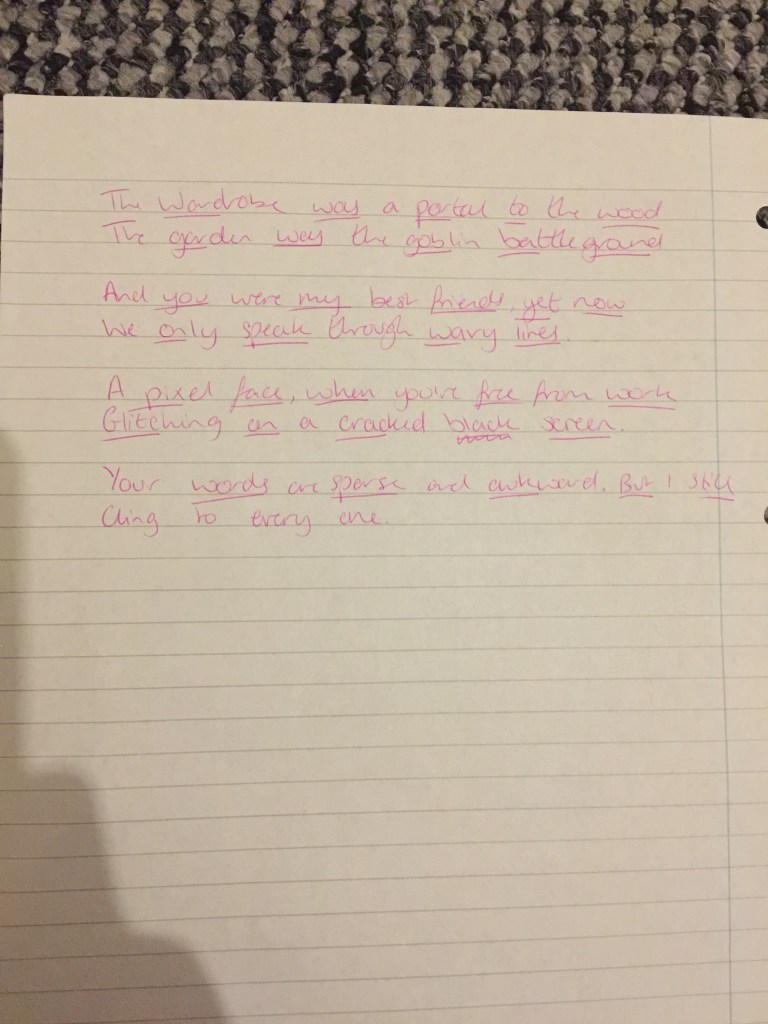 The wardrobe was a portal to the wood
The garden was the goblin battleground
And you were my best friends, yet now
We only speak through wavy lines.
A pixel face, when you're free from work
Glitching on a cracked black screen.
Your words are sparse and awkward. But I still
Cling to every one.